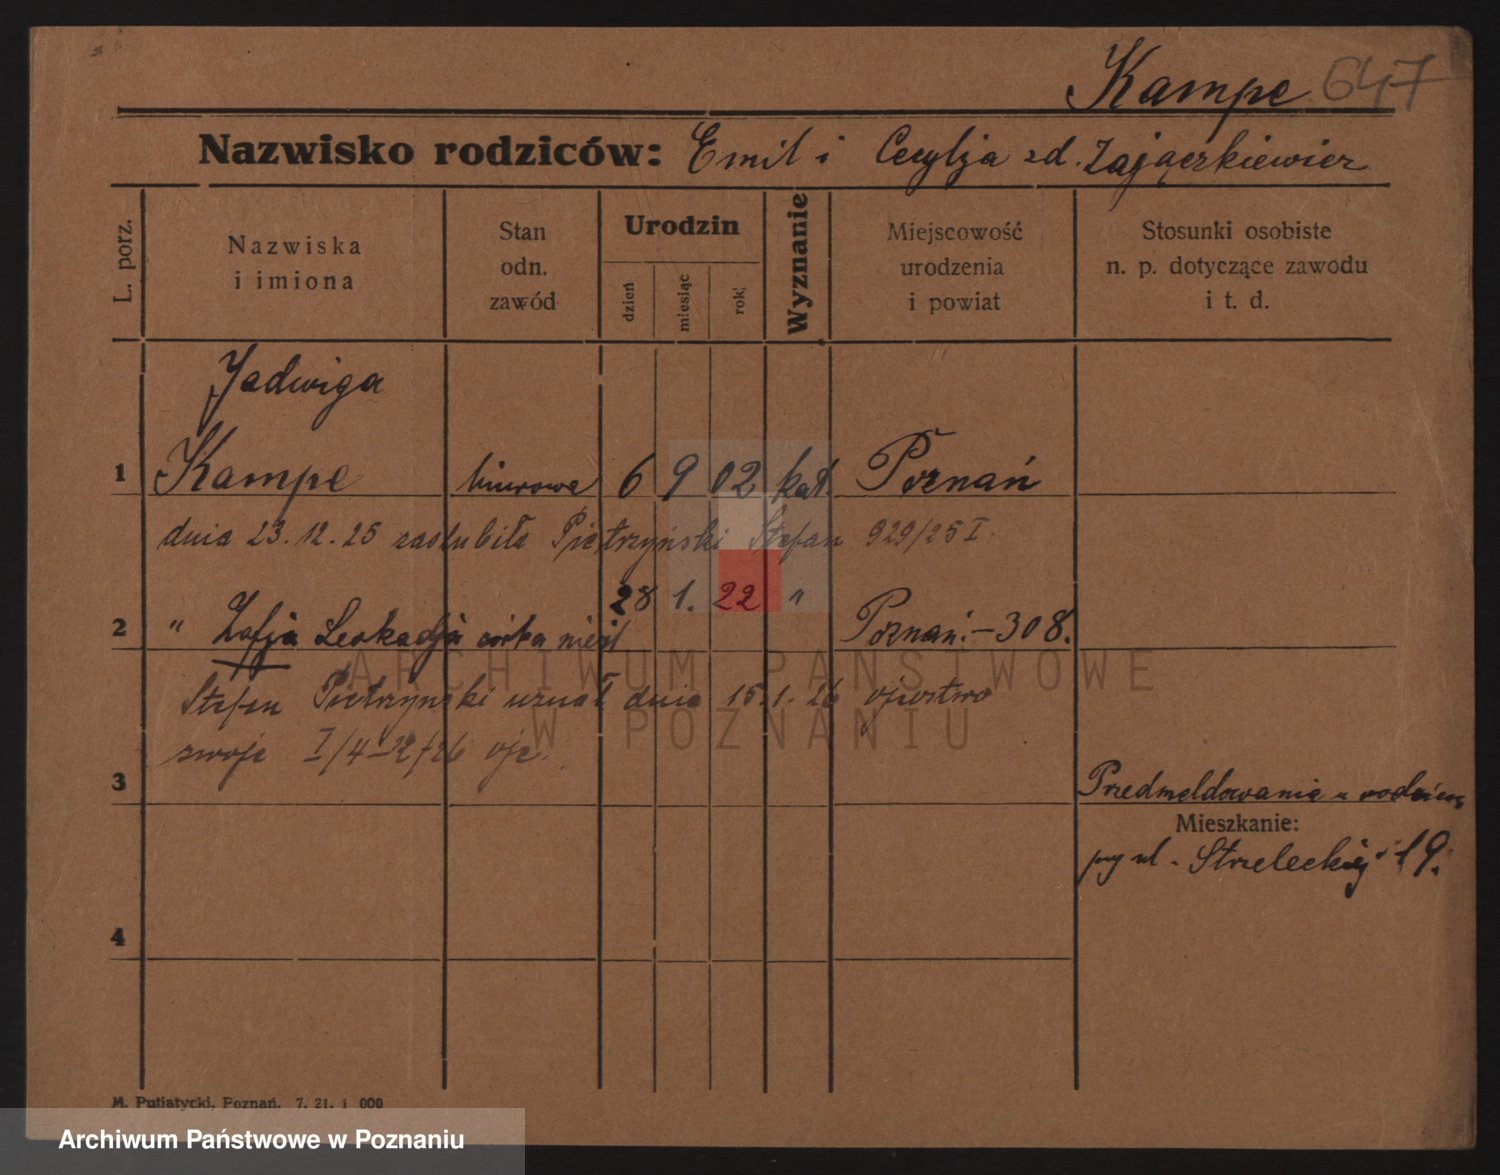 Kampe 647
Nazwisko rodziców: Emil i Cecylja zd. Zajączkiewicz
L. porz.
Nazwiska
i imiona
Stan
odn.
zawód
Urodzin
dzień
miesiąc
rok
Wyznanie
Miejscowość
urodzenia
i powiat
Stosunki osobiste
n. p. dotyczące zawodu
i t. d.
Jadwiga
1 Kampe biurowa 6 9 02 kat. Poznań
dnia 23.12.25 zaślubiła Pietrzyński Stefan 929/25 I.
28 1. 22 "
2 " Zofja Leokadja córka nieśl Poznań.-308.
Stefan Pietrzynski uznał dnia 15.1.26 ojcostwo
swoje
3
Przedmeldowanie u
Mieszkanie:
przy ul. Strzeleckiej 19.
4
M. Putiatycki, Poznań. 7. 21. 1 000
ARCHIWUM PAŃSTWOWE
W POZNANIU
Archiwum Państwowe w Poznaniu